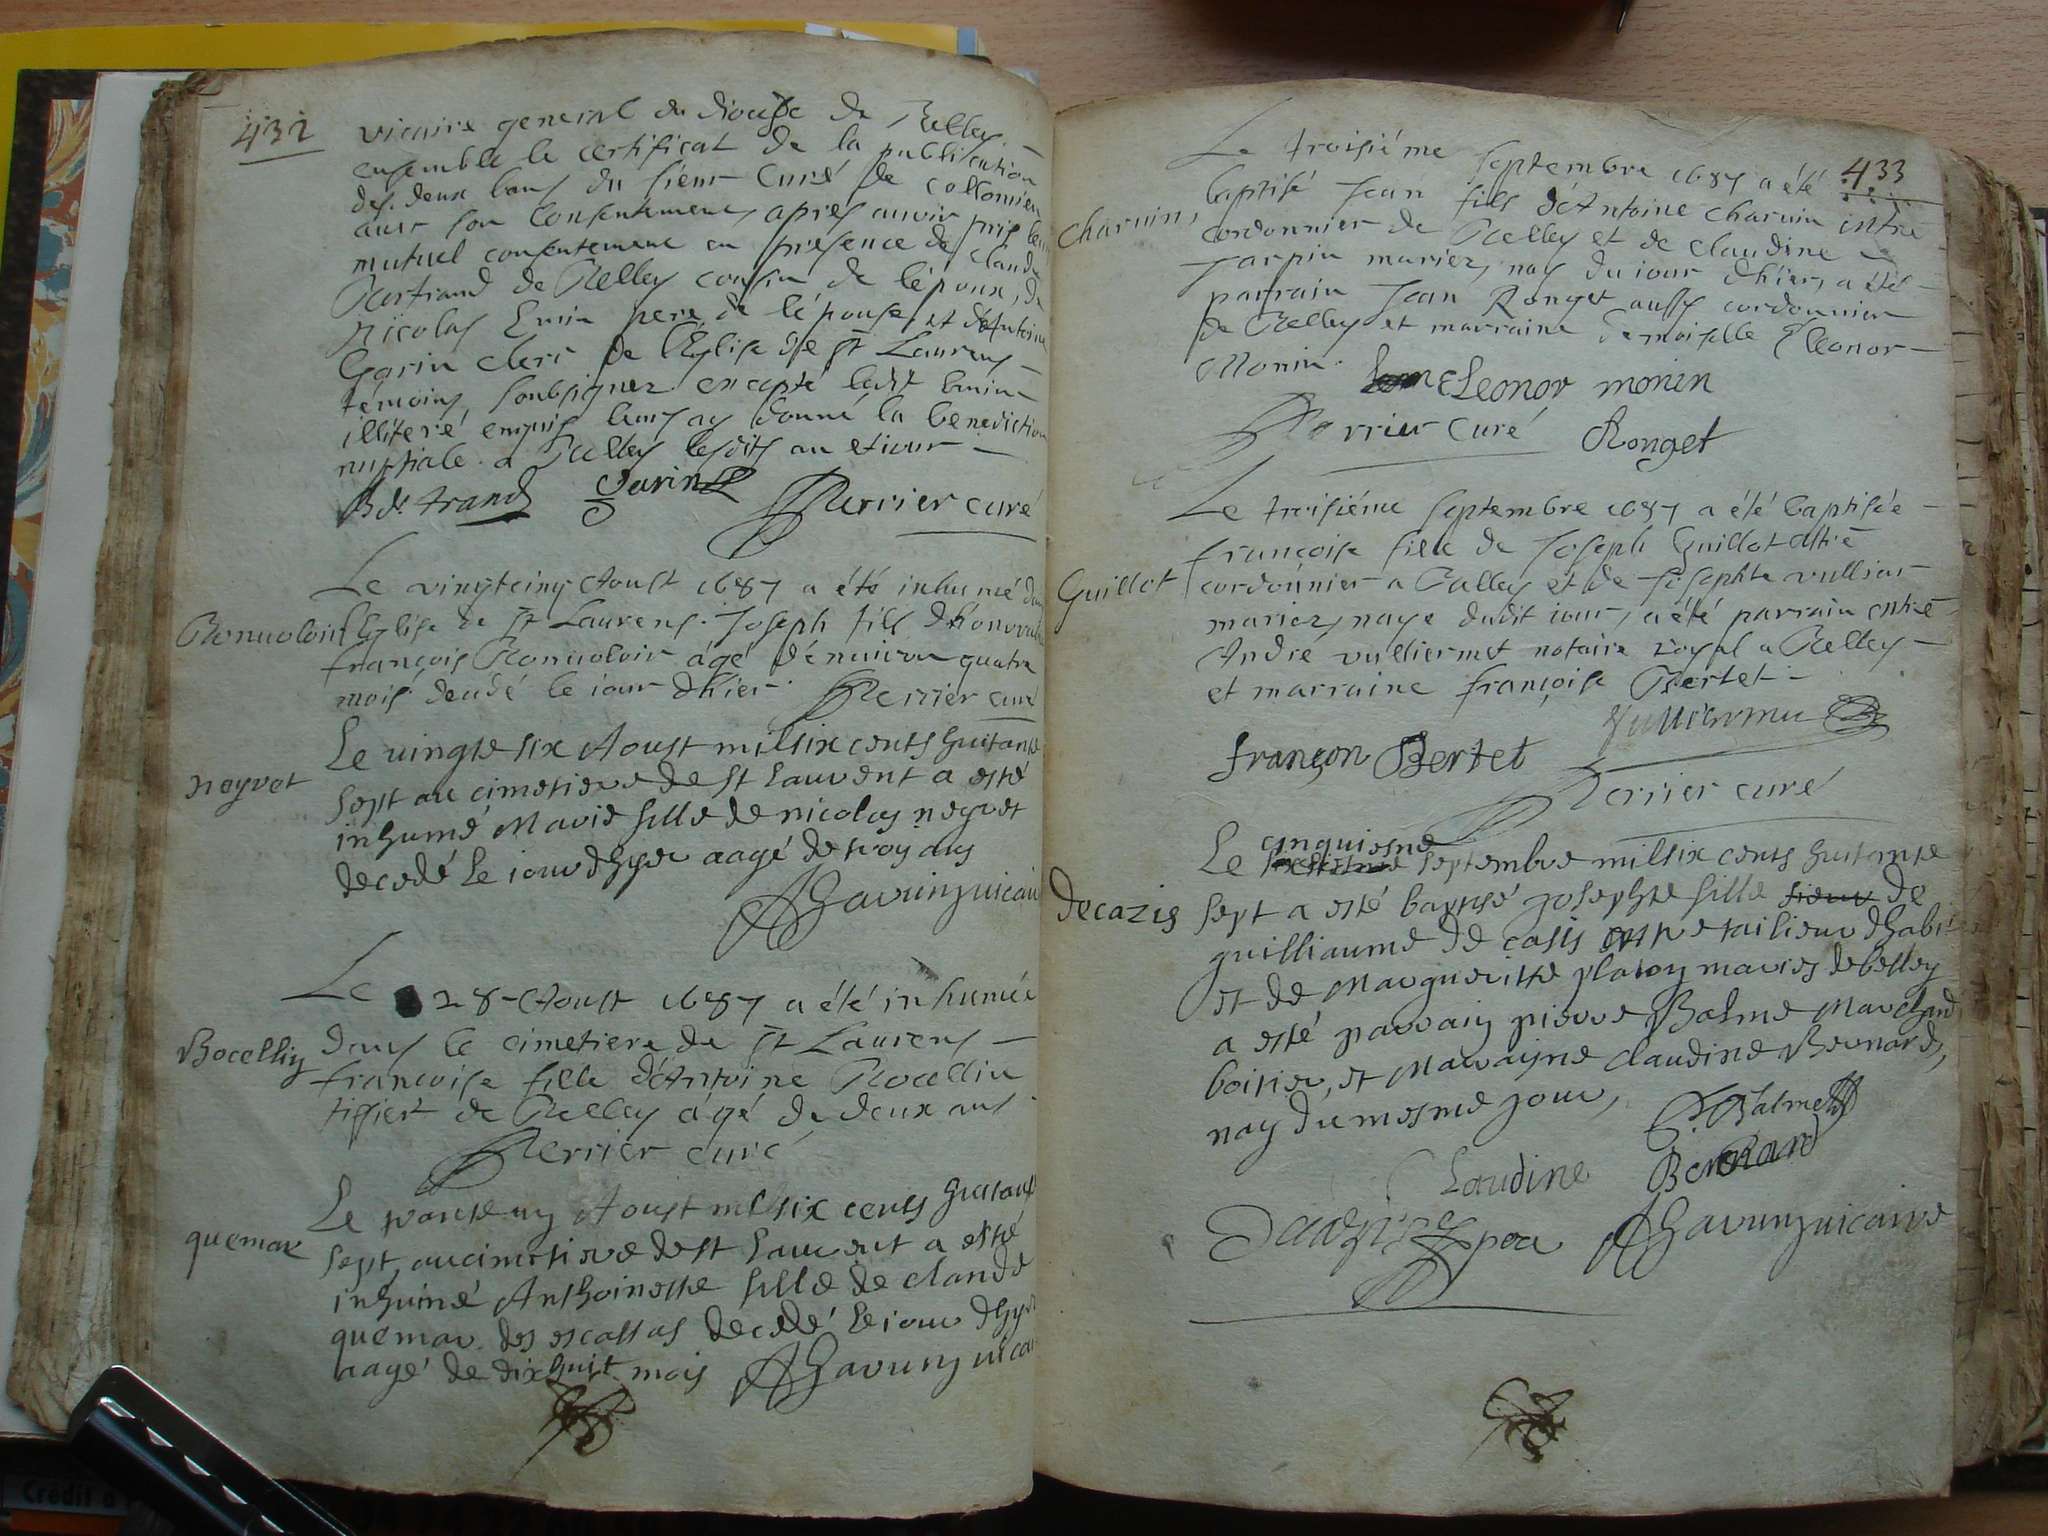 432
vicaire general du diocese de Belley
ensemble le certificat de la publication
des deux bans du sieur Curé de
avec son consentement, apres avoir pris leur
mutuel consentement en presence de claude
Bertrand de Belley cousin de l'époux, de
Nicolas pere de l'épouse, et d'Antoine
Garin clerc de l'Eglise de St Laurens
témoins soubsignez excepté ledit
illiteré enquis leurs ay donné la benediction
nuptiale a Belley lesdits an et iour
Bertrand Garin Perrier curé
Le vingtcinq Aoust 1687 a été inhumé dans
l'Eglise de St Laurens Joseph fils d'honorable
françois age d'environ quatre
mois decedé le iour d'hier Perrier curé
neyret
Le vingte six Aoust mil six cents huitante
sept au cimetiere de st laurent a esté
inhumé Marie fille de nicolas neyret
decedé le iour dhyer aagé de troy ans
Bocellin
Le 28 Aoust 1687 a été inhumée
dans le cimetiere de St Laurens
francoise fille d'Antoine Bocellin
tissier de Belley âgé de deux ans
Perrier curé
quemar
Le trante un Aoust mil six cents huitante
sept, au cimetiere de st laurent a esté
inhumé Anthoinette fille de claude
quemar des escassas decedé le iour dhyer
aagé de dixhuit mois
433
charvin,
Le troisiéme septembre 1687 a été
baptisé Jean fils d'Antoine charvin
cordonnier de Belley et de claudine
Jarpin mariez, nay du iour d'hier, a été
parrain Jean Ronget aussy cordonnier
de Belley et marraine demoiselle Eleonor
Monin.
Eleonor monin
Perrier curé Ronget
Guillot
Le troisiéme septembre 1687 a été baptisée
françoise fille de Joseph Guillot
cordonnier a Belley et de Josephte
mariez, naye dudit iour, a été parrain
Andre vulliermet notaire royal a Belley
et marraine françoise Bertet
Vulliermet
françon Bertet
Perrier curé
decazis
Le cinquiesme septembre mil six cents huitante
sept a esté baptisé josephte fille de
guilliaume de casis tailieur dhabit
et de Margueritte platon maries de belley
a esté parrain pierre Balme Marchand
boitier, et Marayne claudine Bernard,
nay du mesme jour,
P. Balme
Claudine Bernard